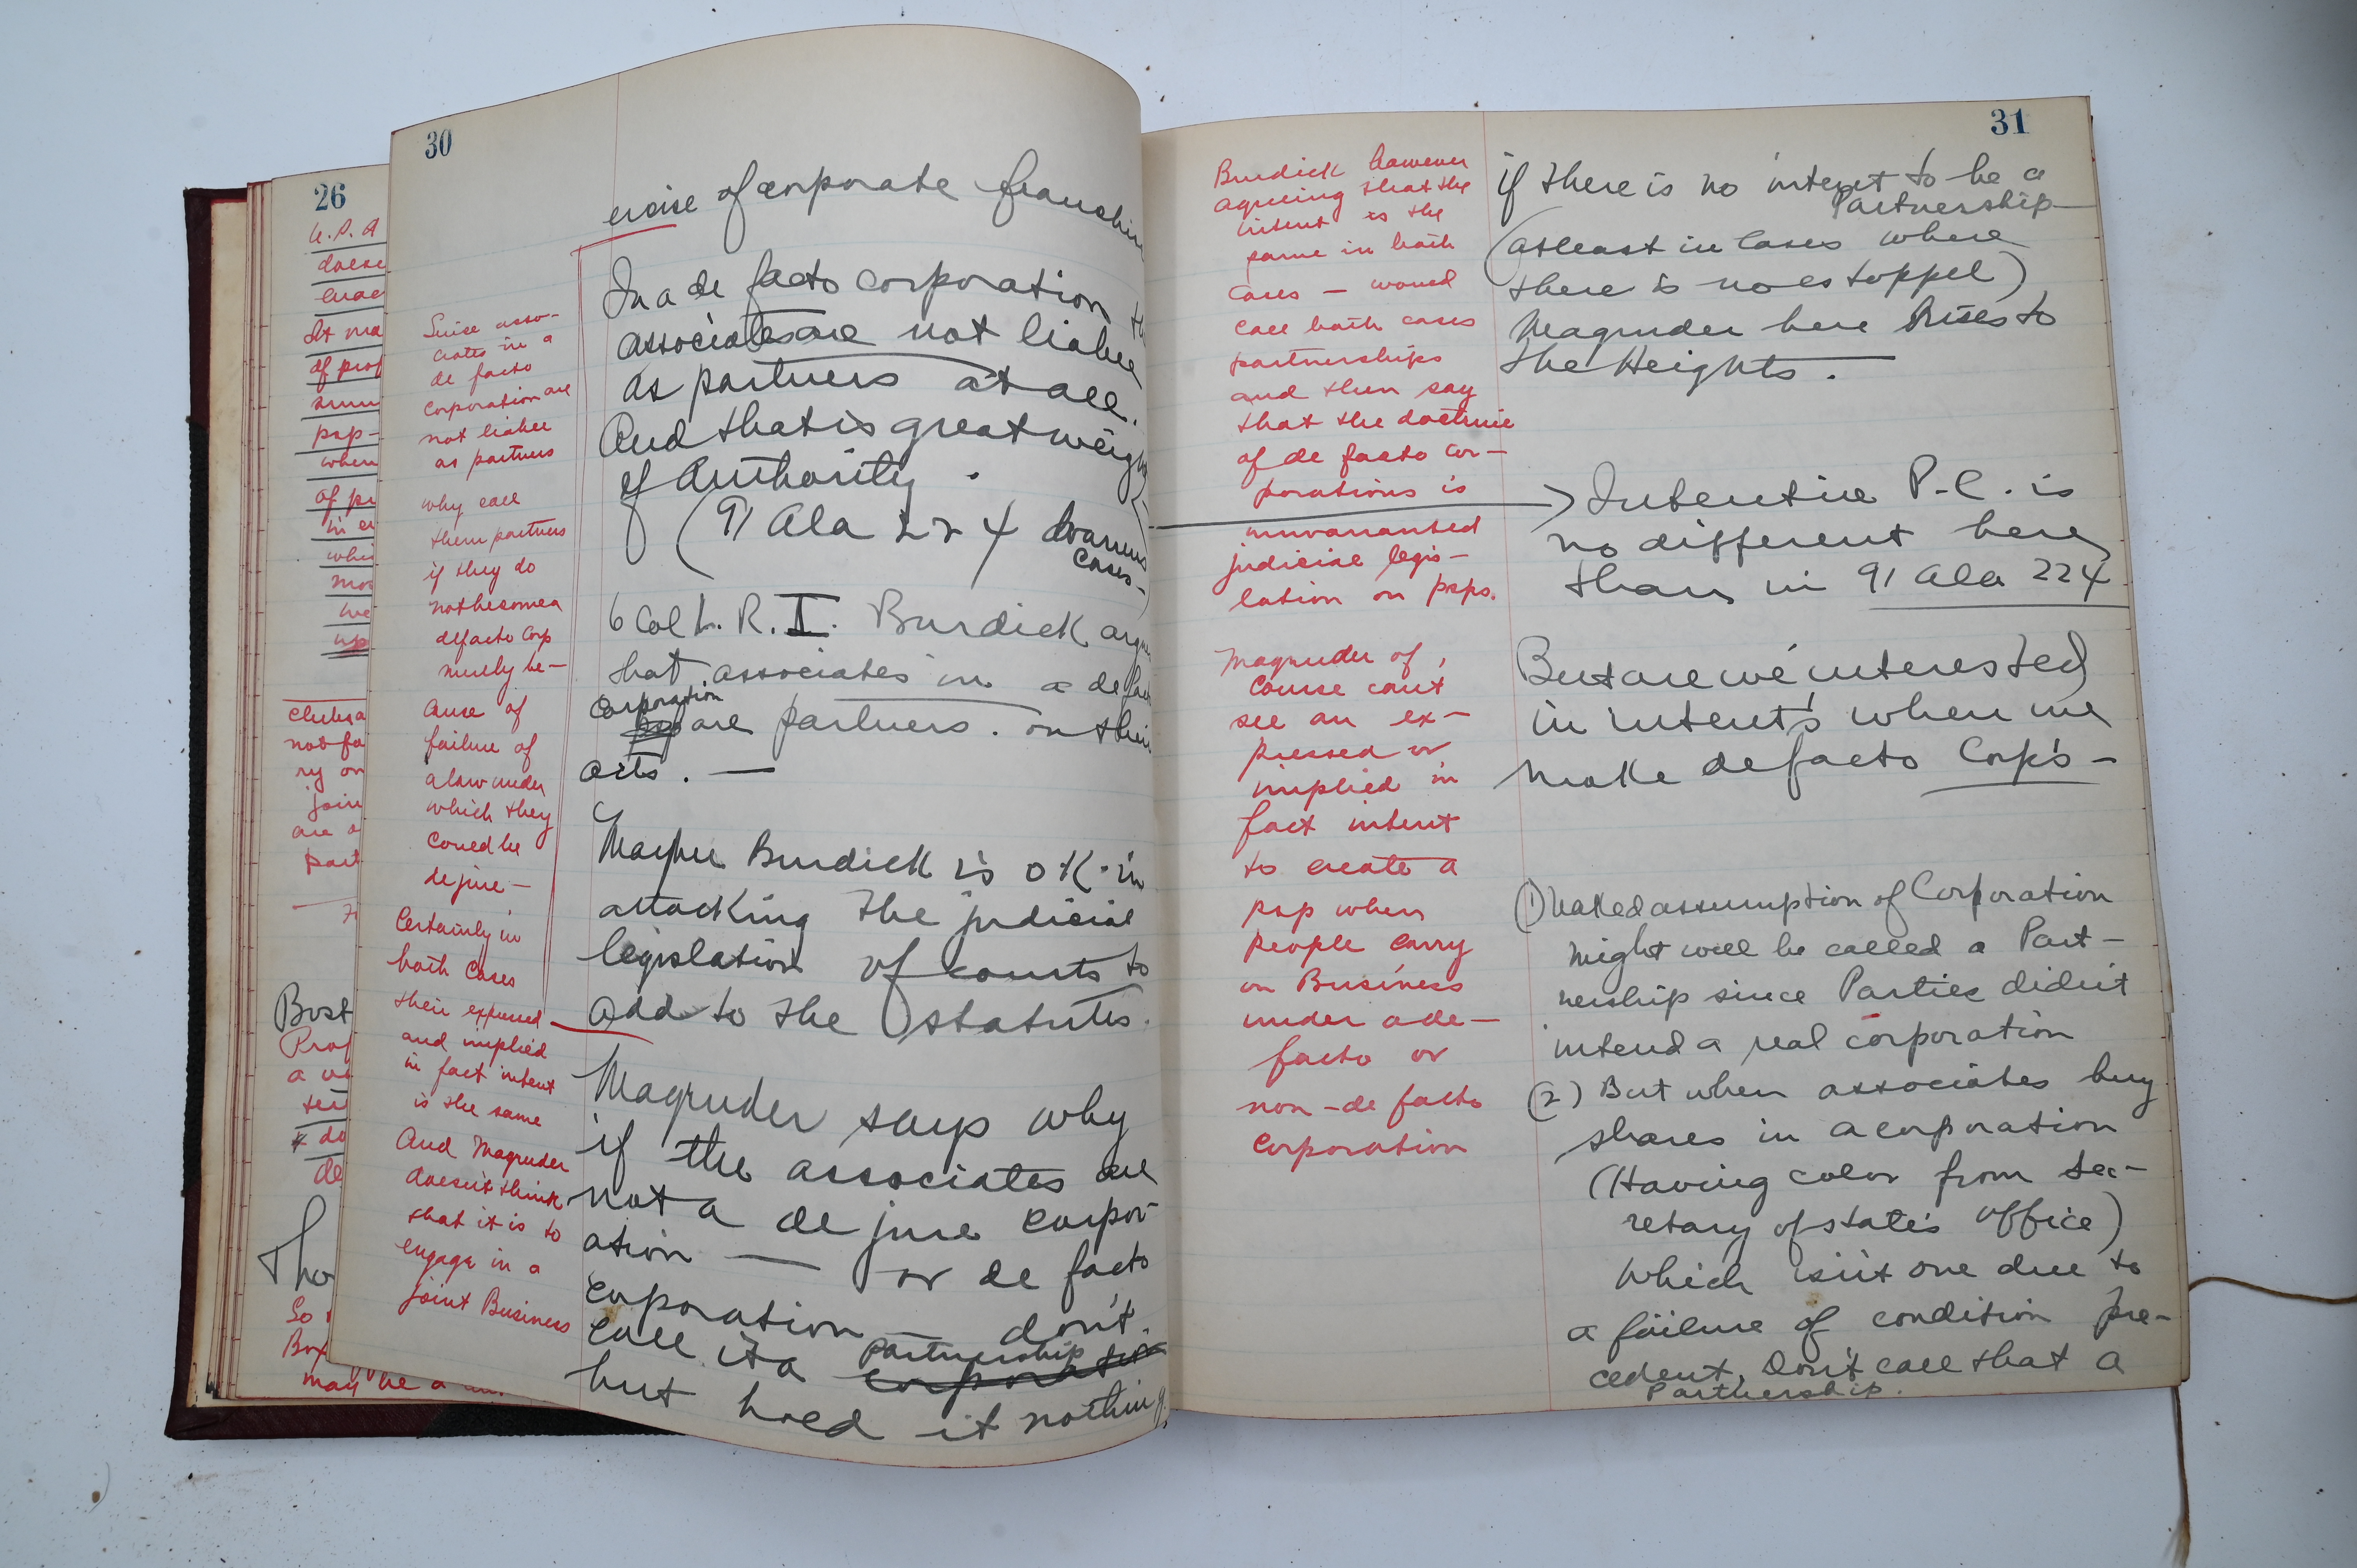 26
U. P. A
doese
enac
At ma
of prof
psp-
when
of pr
in en
whi
mos
we
up
not fa
ry on
join
are o
part
Bost
Prof
a
do
de
Tho
So
may be a
30
ercise of corporate franchise
In a de facto corporation
associates are not liable
as partners at all.
And that is great weight
of Authority.
(91 Ala 224 Warners
Cases-)
6 Col L. R. I. Burdick argues
that associates in a de facto
Corporation
are partners. on their
acts. —
Maybe Burdick is OK. in
attacking the judicial
legislation of courts to
add to the statutes.
Magruder says why
if the associates are
not a de jure corpor-
ation — or de facto
corporation — don't
call it a partnership
but hold it nothing.
Since asso-
ciates in a
de facto
corporation are
not liable
as partners
why call
them partners
if they do
not become a
defacto Corp
merely be-
cause of
failure of
a law under
which they
could be
dejure —
Certainly in
both Cases
their expressed
and implied
in fact intent
is the same
And Magruder
doesn't think
that it is to
engage in a
joint Business
31
Burdick however
agreeing that the
intent is the
same in both
cases — would
call both cases
partnerships
and then say
that the doctrine
of de facto cor-
porations is
unwarranted
judicial legis-
lation on psps.
Magruder of
course can't
see an ex-
pressed or
implied in
fact intent
to create a
psp when
people carry
on Business
under a de-
facto or
non-de facto
corporation
if there is no intent to be a
Partnership
(at least in Cases where
there is no estoppel)
Magruder here Rises to
the Heights.
Intentive P.C. is
no different here
than in 91 Ala 224
But are we interested
in intents when we
make defacto Corp's —
(1) Naked assumption of Corporation
might well be called a Part-
nership since Parties didn't
intend a real corporation
(2) But when associates buy
shares in a corporation
(Having color from sec-
retary of state's office)
Which isn't one due to
a failure of condition pre-
cedent, Don't call that a
Partnership.